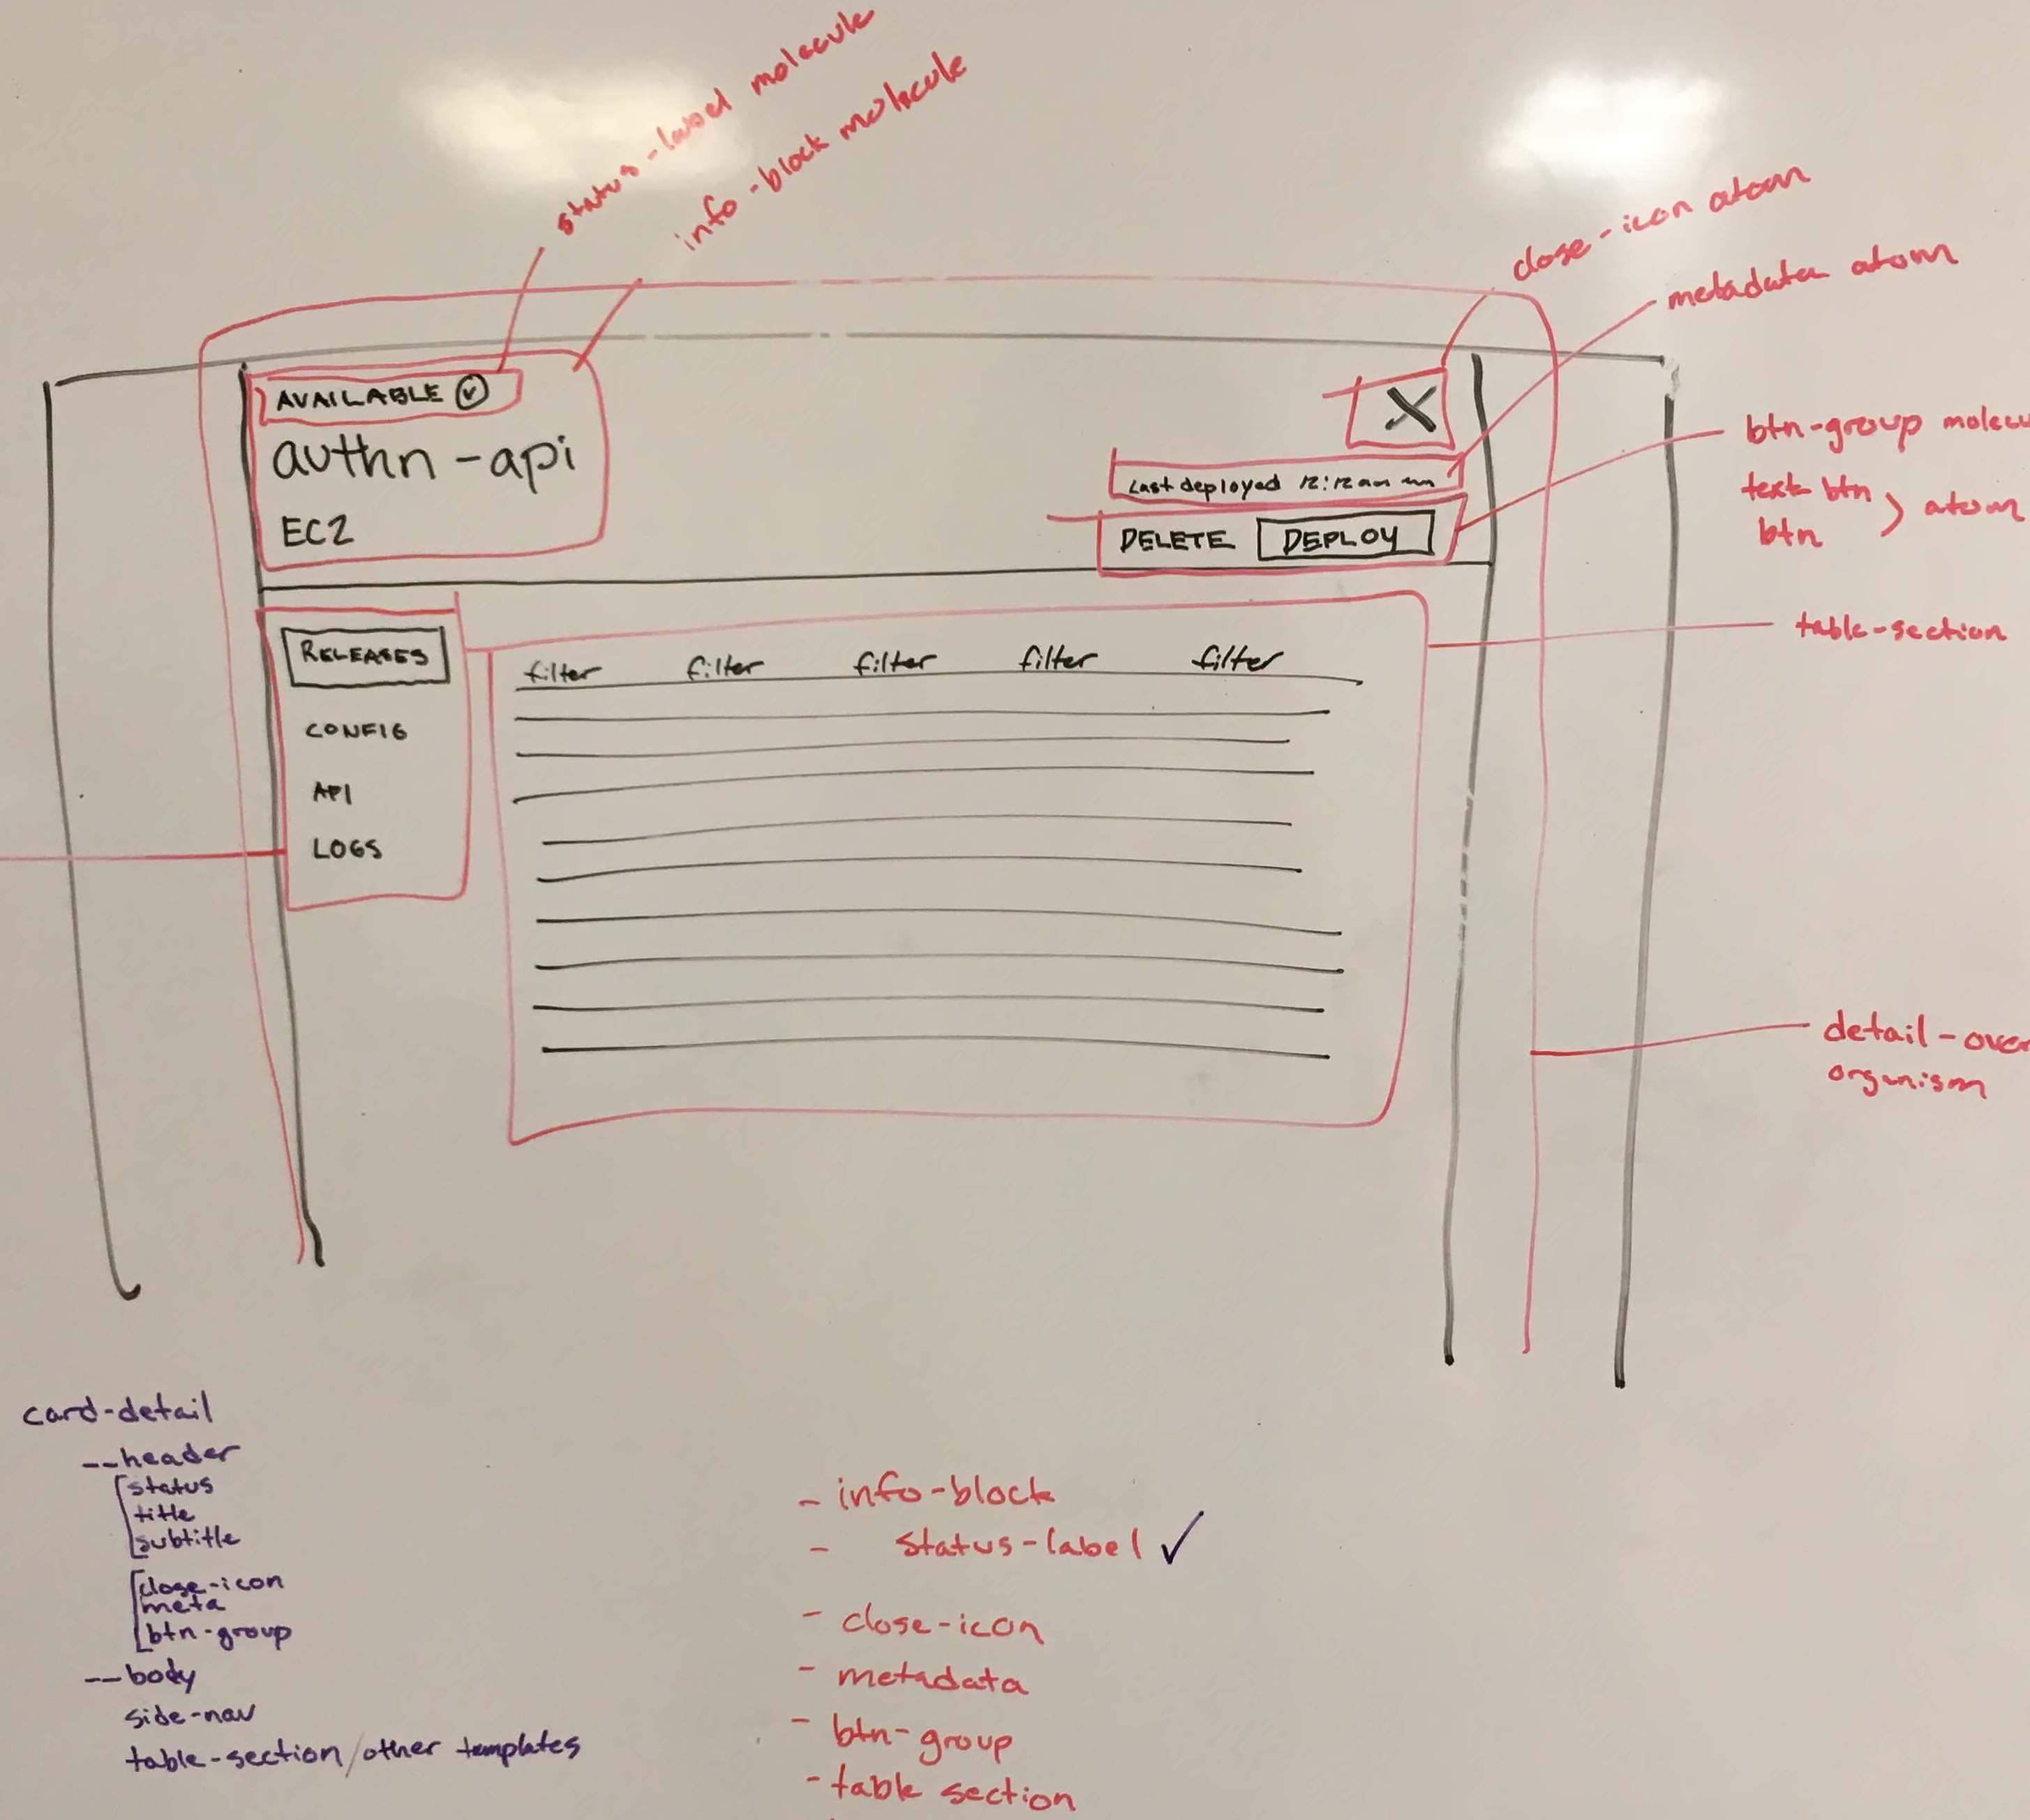 status-label molecule
info-block molecule
close-icon atom
metadata atom
AVAILABLE
authn-api
EC2
X
Last deployed 12:12am
DELETE DEPLOY
btn-group molecu
text btn
btn
atom
table-section
RELEASES
CONFIG
API
LOGS
filter filter filter filter filter
detail-over
organism
card-detail
--header
status
title
subtitle
close-icon
meta
btn-group
--body
side-nav
table-section/other templates
- info-block
- status-label ✓
- close-icon
- metadata
- btn-group
- table section